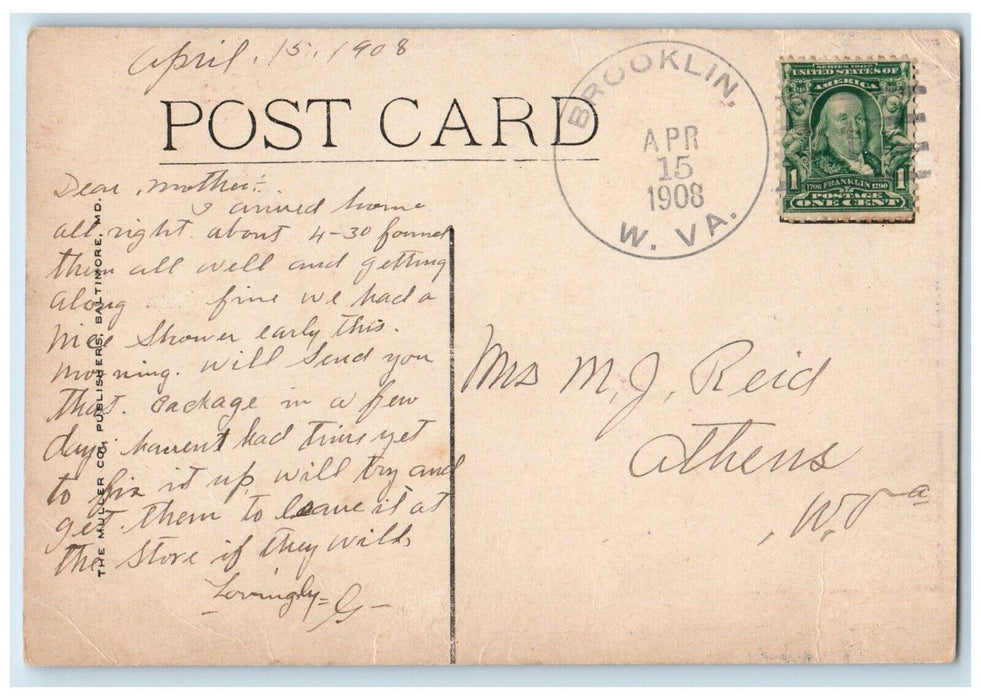 April. 15. 1908
POST CARD
BROOKLIN,
APR
15
1908
W. VA.
SERIES 1902
UNITED STATES OF
AMERICA
1706 FRANKLIN 1790
1 POSTAGE 1
ONE CENT
Dear, mother:-
I arrived home
all right about 4-30 found
them all well and getting
along fine we had a
nice shower early this.
morning. will send you
that. package in a few
days havent had time yet
to fix it up, will try and
get them to leave it at
the store if they will,
Lovingly = G -
THE MULLER CO., PUBLISHERS, BALTIMORE, MD.
Mrs M, J, Reid
Athens
W, Va